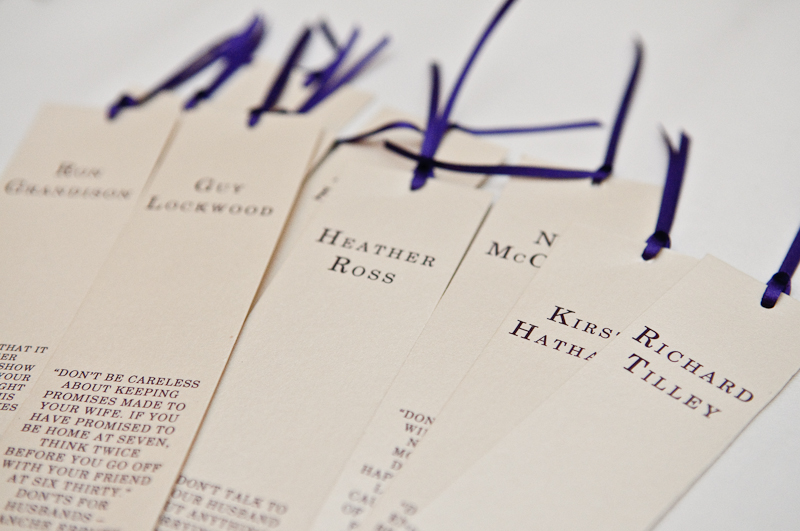 Ron
Grandison
THAT IT
SHOW
YOUR
GHT
HIS
KES
Guy
Lockwood
"DON'T BE CARELESS
ABOUT KEEPING
PROMISES MADE TO
YOUR WIFE. IF YOU
HAVE PROMISED TO
BE HOME AT SEVEN,
THINK TWICE
BEFORE YOU GO OFF
WITH YOUR FRIEND
AT SIX THIRTY."
DON'TS FOR
HUSBANDS –
Heather
Ross
DON'T TALK TO
OUR HUSBAND
UT ANYTHING
N
McC
"DON
Kirs
Hatha
Richard
Tilley